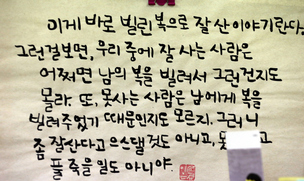 이게 바로 빌린 복으로 잘 산 이야기란다.
그런걸 보면, 우리 중에 잘 사는 사람은
어쩌면 남의 복을 빌려서 그런건지도
몰라. 또, 못사는 사람은 남에게 복을
빌려주었기 때문인지도 모르지. 그러니
좀 잘산다고 으스댈것도 아니고, 못 고
풀 죽을 일도 아니야.